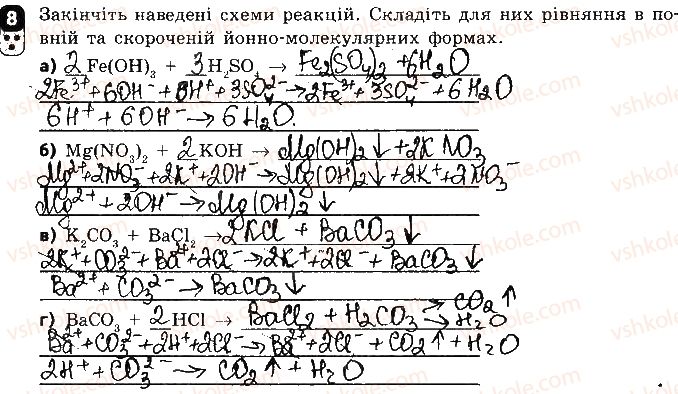 8 Закінчіть наведені схеми реакцій. Складіть для них рівняння в по-
вній та скороченій йонно-молекулярних формах.
а) 2 Fe(OH)₃ + 3 H₂SO₄ → Fe₂(SO₄)₃ + 6H₂O
2Fe³⁺ + 6OH⁻ + 6H⁺ + 3SO₄²⁻ → 2Fe³⁺ + 3SO₄²⁻ + 6H₂O
6H⁺ + 6OH⁻ → 6H₂O.
б) Mg(NO₃)₂ + 2 KOH → Mg(OH)₂↓ + 2KNO₃
Mg²⁺ + 2NO₃⁻ + 2K⁺ + 2OH⁻ → Mg(OH)₂↓ + 2K⁺ + 2NO₃⁻
Mg²⁺ + 2OH⁻ → Mg(OH)₂↓
в) K₂CO₃ + BaCl₂ → 2KCl + BaCO₃↓
2K⁺ + CO₃²⁻ + Ba²⁺ + 2Cl⁻ → 2K⁺ + 2Cl⁻ + BaCO₃↓
Ba²⁺ + CO₃²⁻ → BaCO₃↓
г) BaCO₃ + 2 HCl → BaCl₂ + H₂CO₃ → CO₂↑ → H₂O
Ba²⁺ + CO₃²⁻ + 2H⁺ + 2Cl⁻ → Ba²⁺ + 2Cl⁻ + CO₂↑ + H₂O
2H⁺ + CO₃²⁻ → CO₂↑ + H₂O